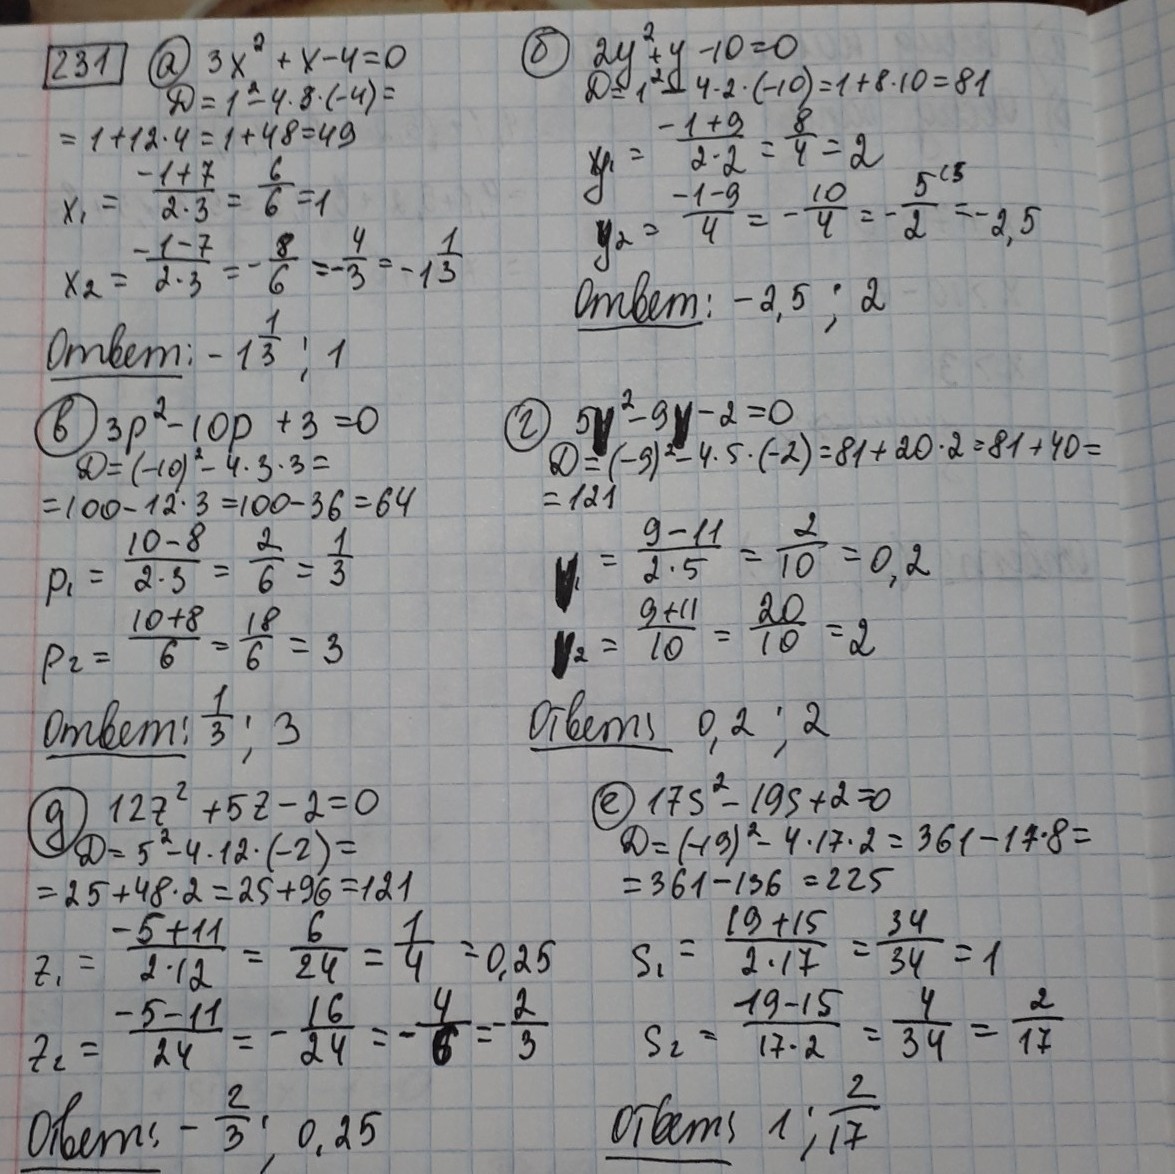 231 а) 3x² + x - 4 = 0
D = 1² - 4·3·(-4) =
= 1 + 12·4 = 1 + 48 = 49
x₁ = (-1+7)/(2·3) = 6/6 = 1
x₂ = (-1-7)/(2·3) = -8/6 = -4/3 = -1 1/3
Ответ: -1 1/3 ; 1
б) 2y² + y - 10 = 0
D = 1² - 4·2·(-10) = 1 + 8·10 = 81
y₁ = (-1+9)/(2·2) = 8/4 = 2
y₂ = (-1-9)/4 = -10/4 = -5/2 = -2,5
Ответ: -2,5 ; 2
в) 3p² - 10p + 3 = 0
D = (-10)² - 4·3·3 =
= 100 - 12·3 = 100 - 36 = 64
p₁ = (10-8)/(2·3) = 2/6 = 1/3
p₂ = (10+8)/6 = 18/6 = 3
Ответ: 1/3 ; 3
г) 5y² - 9y - 2 = 0
D = (-9)² - 4·5·(-2) = 81 + 20·2 = 81 + 40 =
= 121
y₁ = (9-11)/(2·5) = 2/10 = 0,2
y₂ = (9+11)/10 = 20/10 = 2
Ответ: 0,2 ; 2
д) 12z² + 5z - 2 = 0
D = 5² - 4·12·(-2) =
= 25 + 48·2 = 25 + 96 = 121
z₁ = (-5+11)/(2·12) = 6/24 = 1/4 = 0,25
z₂ = (-5-11)/24 = -16/24 = -4/6 = -2/3
Ответ: -2/3 ; 0,25
е) 17s² - 19s + 2 = 0
D = (-19)² - 4·17·2 = 361 - 17·8 =
= 361 - 136 = 225
s₁ = (19+15)/(2·17) = 34/34 = 1
s₂ = (19-15)/(17·2) = 4/34 = 2/17
Ответ: 1 ; 2/17